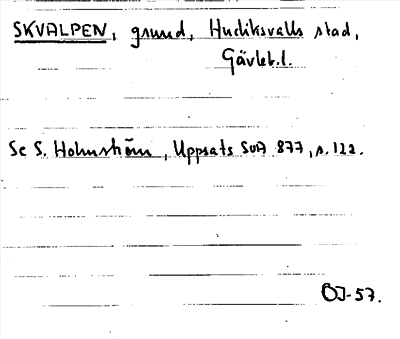 SKVALPEN, grund, Hudiksvalls stad,
Gävleb.l.
Se S. Holmström, Uppsats SOA 877, s. 122.
BJ-57.